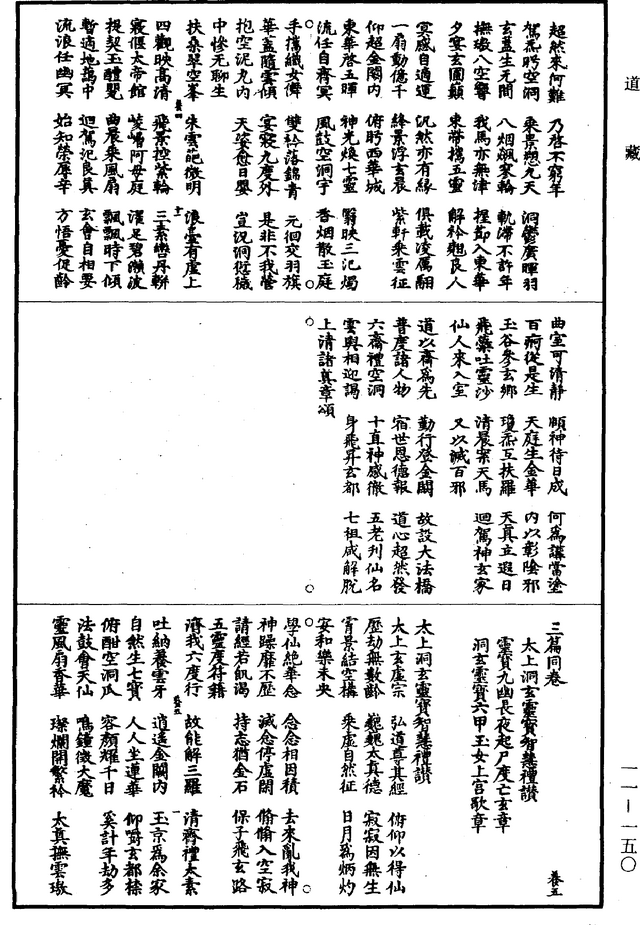 道藏
超然來何難 乃啓不窮年
駕炁眄空洞 乘景總九天 洞鬱廣暉羽
玄蓋生无間 八烟飙裹輪 軌滯不許年
撫璈八空響 我馬亦無津 捏勛入東華
夕宴玄圃顛 束帶攜五靈 解衿翹良人
冥感自適運 汎然亦有緣 俱載淩厲翮
一扇動億千 絳景浮玄晨 紫軒乘雲征
仰超金闕內 俯眄西華城
東華啓五暉 神光煥七靈 翳映三汜燭
流任自齊冥 風鼓空洞宇 香烟散玉庭
手攜織女儛 雙衿落錦青 元徊交羽旗
華蓋隨雲傾 宴寂九度外 是非不我營
抱空泥丸內 天姿愈日嬰 豈況洞衍穢
中慘无聊生
扶桑翠空峯 朱雲葩微明 浪登有虛上
四觀映高清 飛景控紫輪 三素巒丹軿
寢偃太帝館 嵋阿母庭 濯足碧瀨波
提契玉醴甖 曲晨乘風扇 飄飄時下傾
暫適地藹中 迴駕汜良真 玄會自相要
流浪任幽冥 始知榮辱辛 方悟憂促齡
曲室可清靜 頤神待日成 何爲讓當塗
百痾從是生 天庭生金華 內以彰陰邪
玉谷參玄鄉 瓊炁互扶羅 天真立遐日
飛藥吐靈沙 清晨案天馬 迴駕神玄家
仙人來入室 又以滅百邪
道以齋爲先 勤行登金闕 故設大法橋
普度諸人物 宿世恩德報 道心超然發
六齋禮空洞 十直神感徹 五老刋仙名
雲輿相迎謁 身飛昇玄都 七祖咸解脫
上清諸真章頌
三篇同卷
太上洞玄靈寶智慧禮讚
靈寶九幽長夜起尸度亡玄章
洞玄靈寶六甲玉女上宮歌章
太上洞玄靈寶智慧禮讚
太上玄虛宗 弘道尊其經 俯仰以得仙
歷劫無數齡 巍巍太真德 寂寂因無生
霄景結空構 乘虛自然征 日月爲炳灼
安和樂未央
學仙絕華念 念念相因積 去來亂我神
神躁靡不歷 滅念停虛閑 翛翛入空寂
請經若飢渴 持志猶金石 保子飛玄路
五靈度符籍
濟我六度行 故能解三羅 清齋禮太素
吐納養雲牙 逍遙金闕內 玉京爲余家
自然生七寶 人人坐蓮華 仰嚼玄都
俯酣空洞瓜 容顏耀千日 奚計年劫多
法鼓會天仙 鳴鐘徵大魔
靈風扇香華 璨爛開繁衿 太真撫雲璈
一一－一五〇